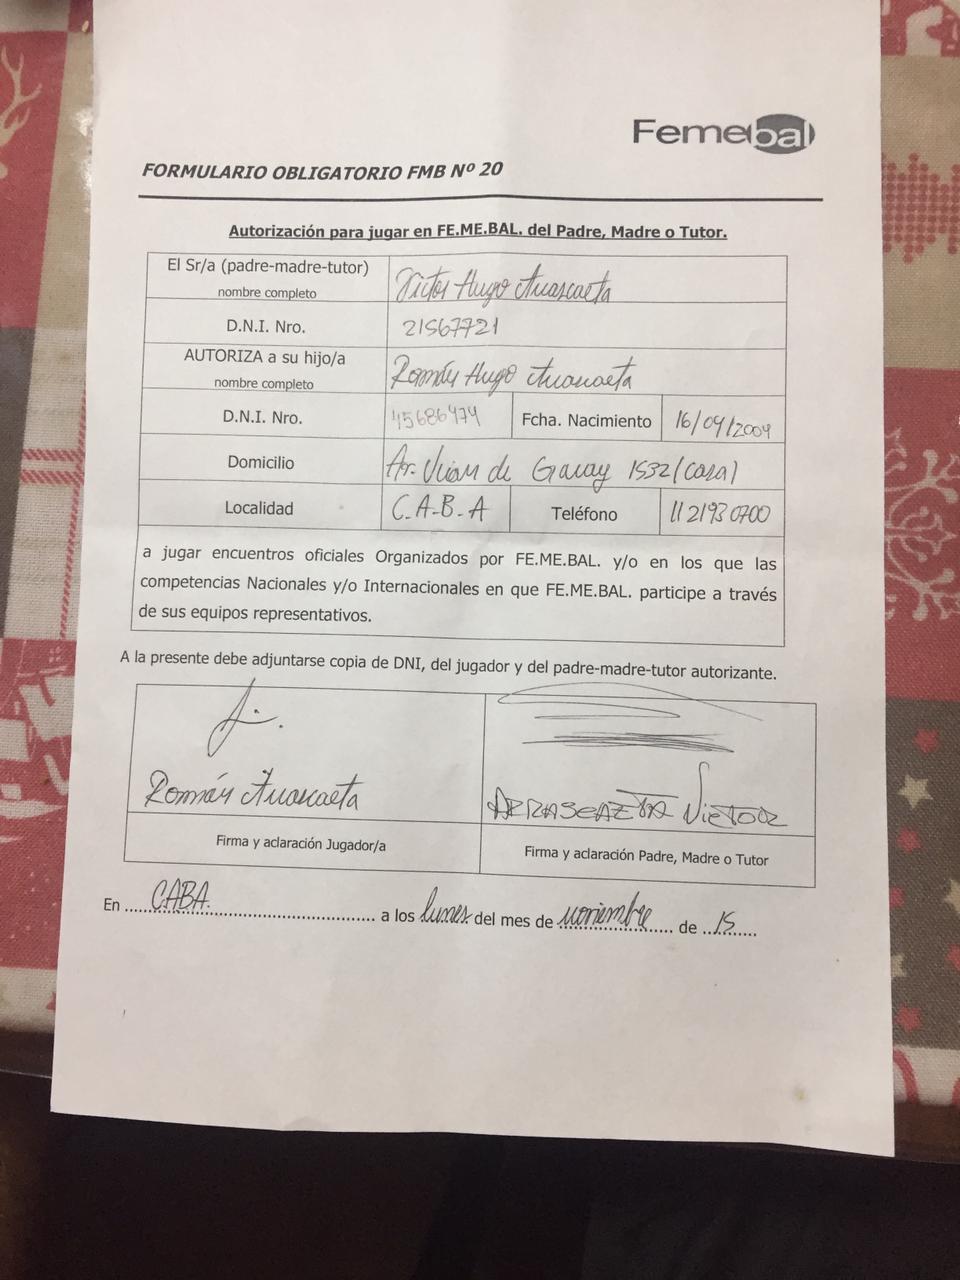 Femebal
FORMULARIO OBLIGATORIO FMB Nº 20
Autorización para jugar en FE.ME.BAL. del Padre, Madre o Tutor.
El Sr/a (padre-madre-tutor)
nombre completo
Victor Hugo Arrascaeta
D.N.I. Nro.
21567721
AUTORIZA a su hijo/a
nombre completo
Román Hugo Arrascaeta
D.N.I. Nro. 45686474 Fcha. Nacimiento 16/04/2004
Domicilio Av. Juan de Garay 1532 (casa)
Localidad C.A.B.A Teléfono 1121930700
a jugar encuentros oficiales Organizados por FE.ME.BAL. y/o en los que las
competencias Nacionales y/o Internacionales en que FE.ME.BAL. participe a través
de sus equipos representativos.
A la presente debe adjuntarse copia de DNI, del jugador y del padre-madre-tutor autorizante.
Román Arrascaeta
ARRASCAETA Victor
Firma y aclaración Jugador/a
Firma y aclaración Padre, Madre o Tutor
En CABA a los lunes del mes de noviembre de 15